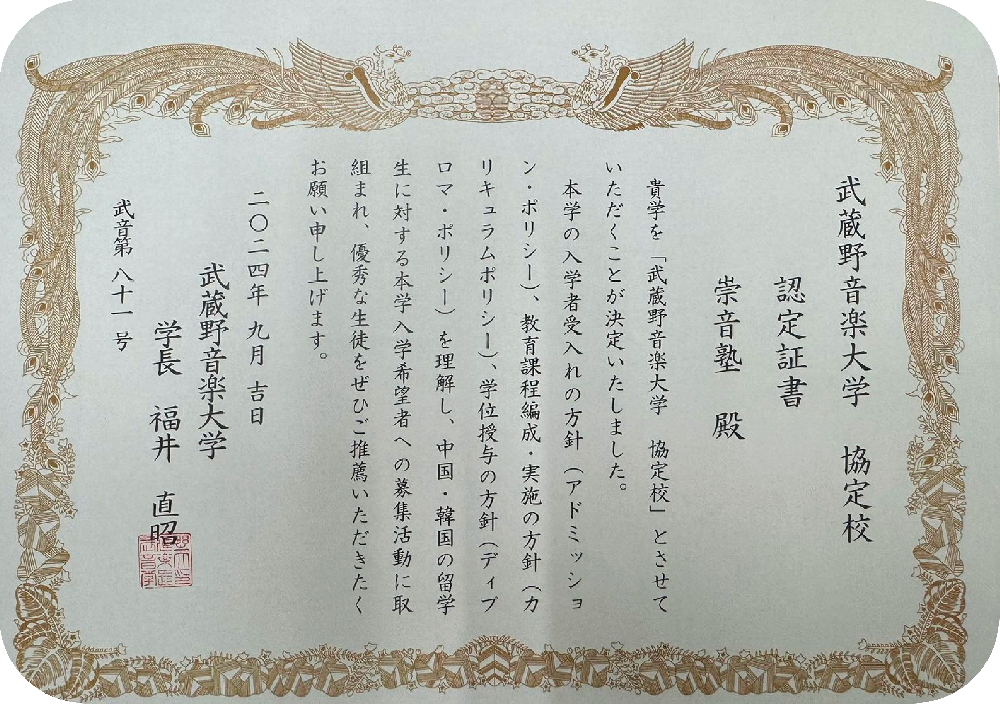 武蔵野音楽大学　協定校
認定証書
崇音塾　殿
貴学を「武蔵野音楽大学　協定校」とさせて
いただくことが決定いたしました。
本学の入学者受入れの方針（アドミッショ
ン・ポリシー）、教育課程編成・実施の方針（カ
リキュラムポリシー）、学位授与の方針（ディプ
ロマ・ポリシー）を理解し、中国・韓国の留学
生に対する本学入学希望者への募集活動に取
組まれ、優秀な生徒をぜひご推薦いただきたく
お願い申し上げます。
二〇二四年　九月　吉日
武蔵野音楽大学
学長　福井　直昭
武音第　八十一　号